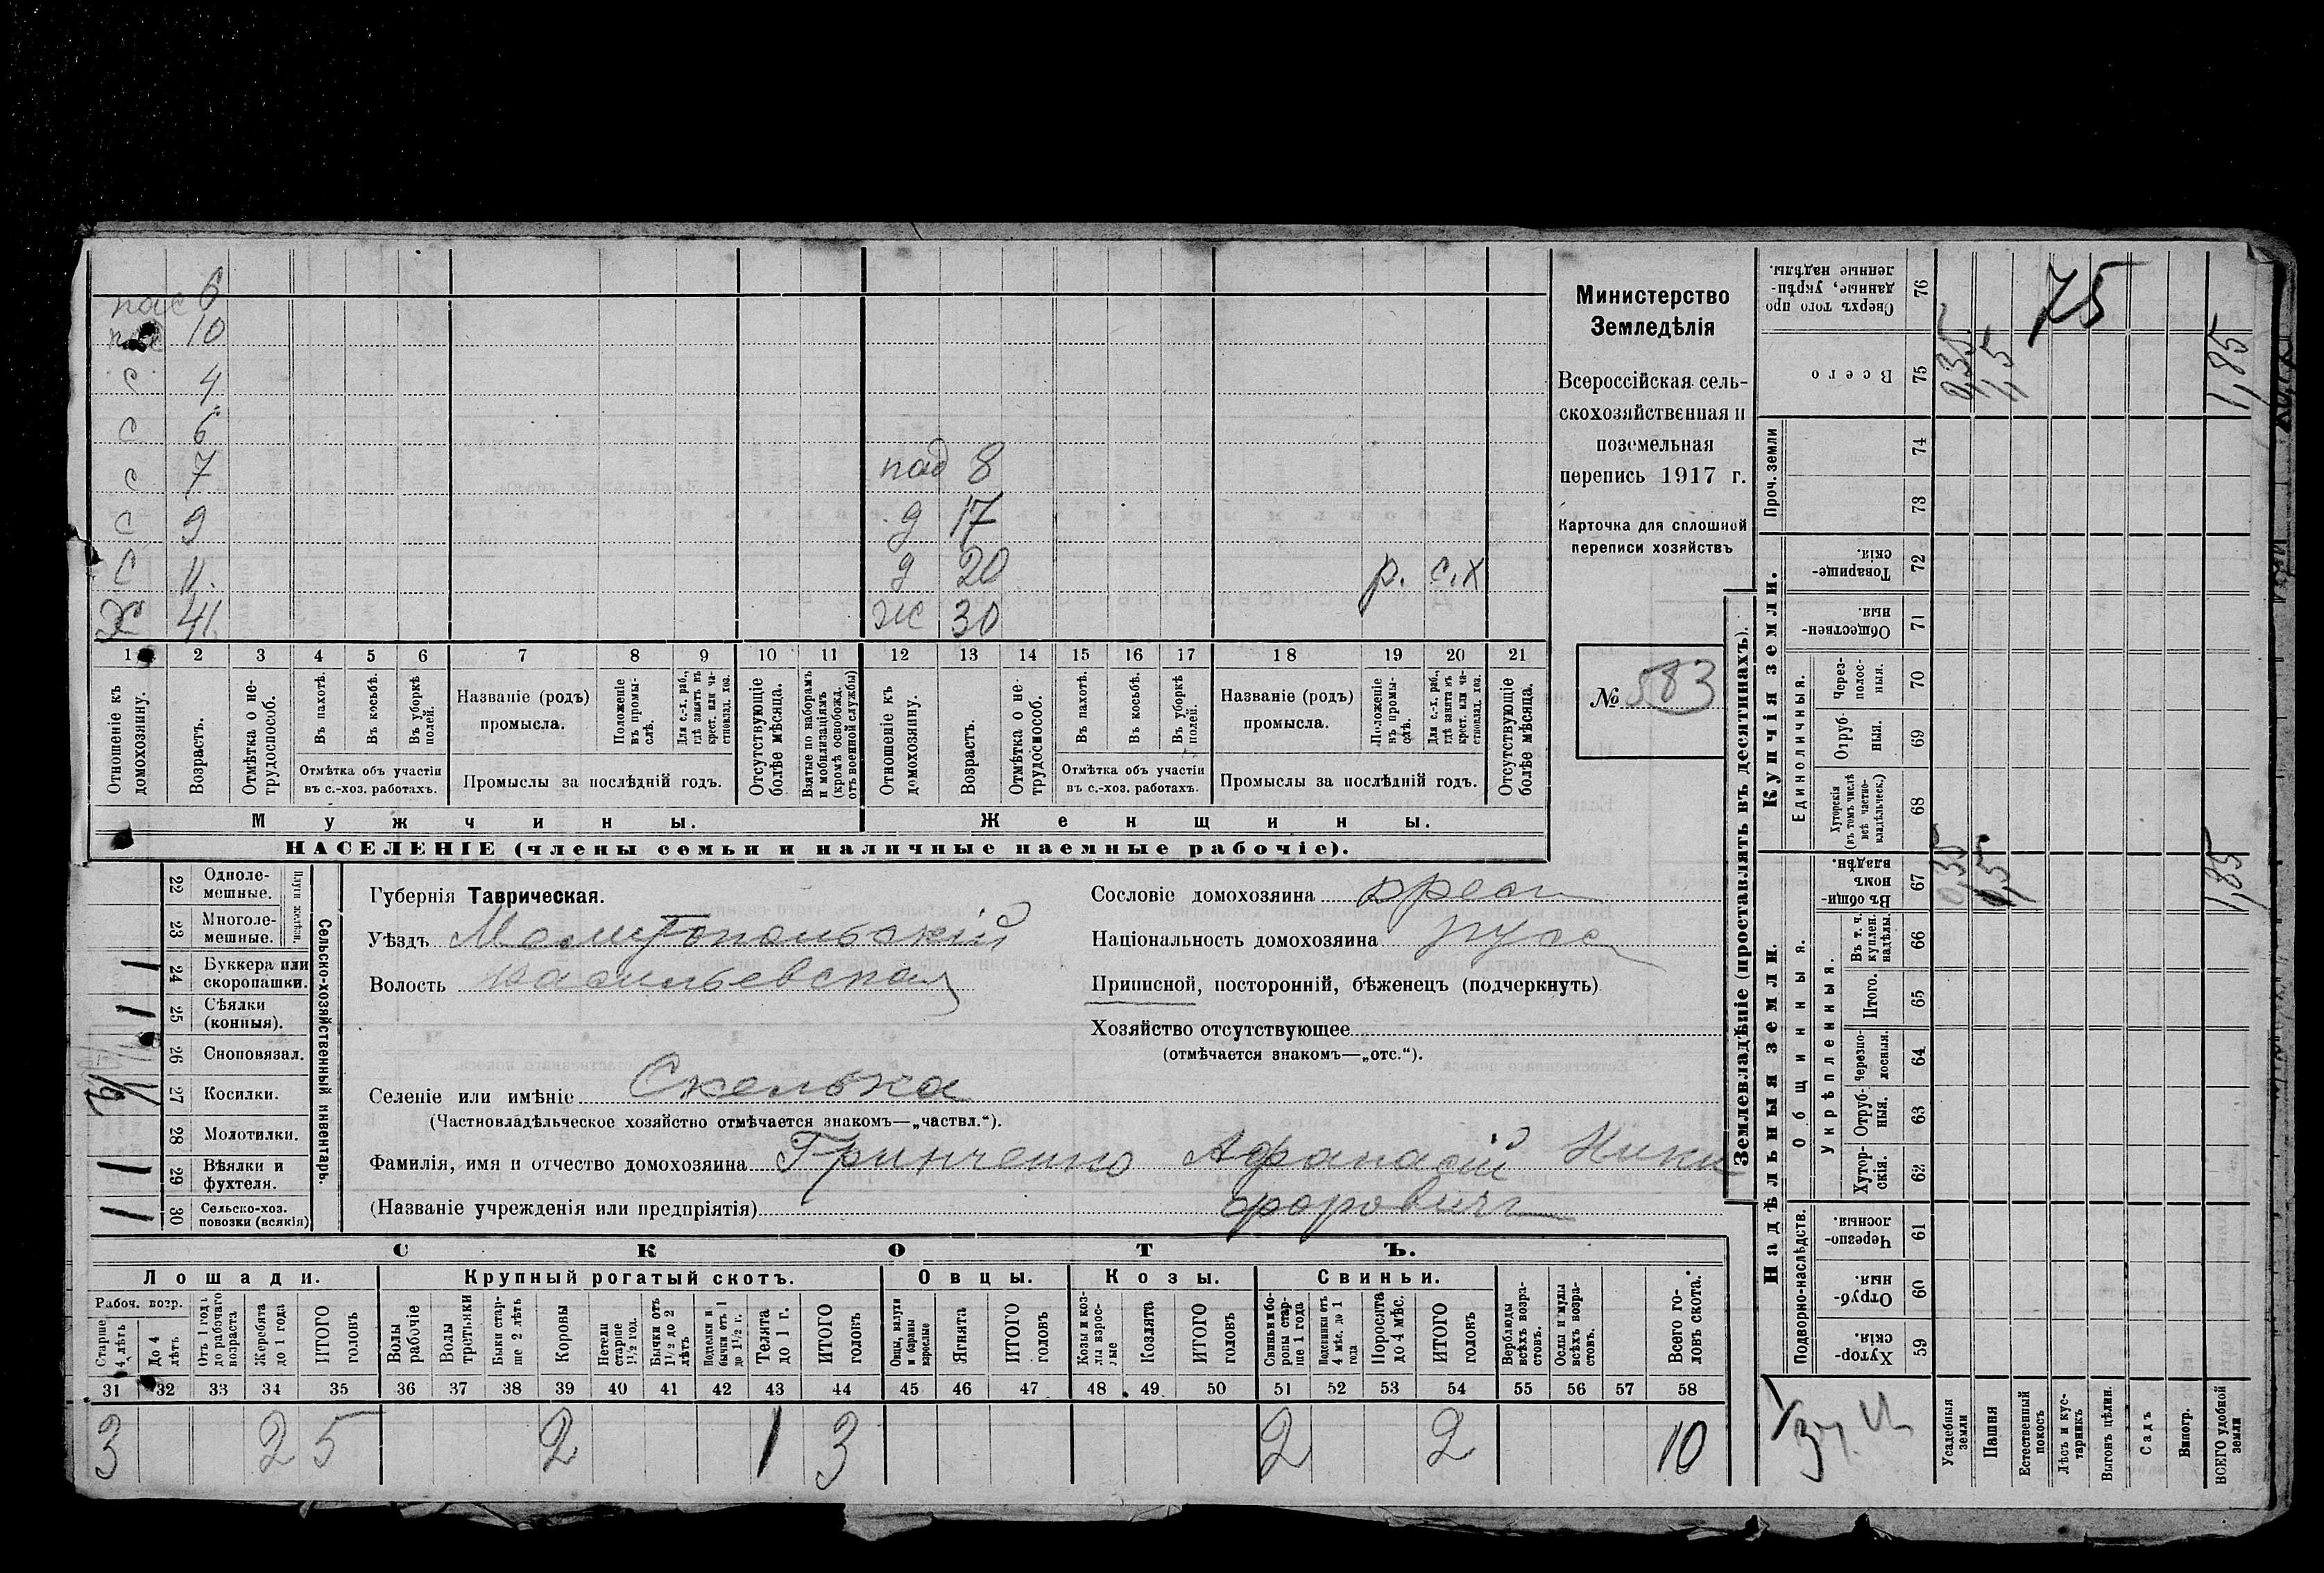 пас 6
пас 10
с 4
с 6
с 7 пад 8
с 9 д 17
с 11 д 20 р. с.х
Х 41 Ж 30
1 2 3 4 5 6 7 8 9 10 11 12 13 14 15 16 17 18 19 20 21
Отношеніе къ домохозяину.
Возрастъ.
Отмѣтка о не-трудоспособ.
Въ пахотѣ.
Въ косьбѣ.
Въ уборкѣ полей.
Отмѣтка объ участіи
въ с.-хоз. работахъ.
Названіе (родъ)
промысла.
Положеніе въ промы-слѣ.
Для с.-х. раб., гдѣ занятъ въ крест. или ча-стновлад. хоз.
Промыслы за послѣдній годъ.
Отсутствующіе болѣе мѣсяца.
Взятые по наборамъ и мобилизаціямъ (кромѣ освобожд. отъ военной службы)
Отношеніе къ домохозяину.
Возрастъ.
Отмѣтка о не-трудоспособ.
Въ пахотѣ.
Въ косьбѣ.
Въ уборкѣ полей.
Отмѣтка объ участіи
въ с.-хоз. работахъ.
Названіе (родъ)
промысла.
Положеніе въ промы-слѣ.
Для с.-х. раб., гдѣ занятъ въ крест. или ча-стновлад. хоз.
Промыслы за послѣдній годъ.
Отсутствующіе болѣе мѣсяца.
Мужчины.
Женщины.
НАСЕЛЕНІЕ (члены семьи и наличные наемные рабочіе).
Министерство
Земледѣлія
Всероссійская сель-
скохозяйственная и
поземельная
перепись 1917 г.
Карточка для сплошной
переписи хозяйствъ
№ 583
22 Однолемешные.
23 Многолемешные.
Плуги желѣзн.
1 24 Буккера или скоропашки.
1 25 Сѣялки (конныя).
26 Сноповязал.
27 Косилки.
28 Молотилки.
1 29 Вѣялки и фухтеля.
1 30 Сельско-хоз. повозки (всякія)
Сельско-хозяйственный инвентарь.
Губернія Таврическая.
Уѣздъ Мелитопольскій
Волость Васильевская
Селеніе или имѣніе Скелька
(Частновладѣльческое хозяйство отмѣчается знакомъ—„частвл.“).
Фамилія, имя и отчество домохозяина Гринченко Афанасій Ники
(Названіе учрежденія или предпріятія) форович
Сословіе домохозяина крест
Національность домохозяина русс
Приписной, посторонній, бѣженецъ (подчеркнуть)
Хозяйство отсутствующее
(отмѣчается знакомъ—„отс.“).
СКОТЪ.
Лошади. Крупный рогатый скотъ. Овцы. Козы. Свиньи.
Рабоч. возр.
Старше 4 лѣтъ
До 4 лѣтъ
Отъ 1 года до рабочаго возраста
Жеребята до 1 года
ИТОГО головъ
Волы рабочіе
Волы третьяки
Быки стар-ше 2 лѣтъ
Коровы
Нетели старше 1½ год.
Бычки отъ 1½ до 2 лѣтъ
Подтелки и бычки отъ 1 до 1½ г.
Телята до 1 г.
ИТОГО головъ
Овцы, валухи и бараны взрослые
Ягнята
ИТОГО головъ
Козы и коз-лы взрос-лые
Козлята
ИТОГО головъ
Свиньи и бо-ровы стар-ше 1 года
Подсвинки отъ 4 мѣс. до 1 года
Поросята до 4 мѣс.
ИТОГО головъ
Верблюды всѣхъ возра-стовъ.
Ослы и мулы всѣхъ возра-стовъ.
Всего го-ловъ скота.
31 32 33 34 35 36 37 38 39 40 41 42 43 44 45 46 47 48 49 50 51 52 53 54 55 56 57 58
3 2 5 2 1 3 2 2 10
Землевладѣніе (проставлять въ десятинахъ).
Надѣльныя земли.
Купчія земли.
Проч. земли
Подворно-наслѣдств.
Общинныя.
Укрѣпленныя.
Единоличныя.
Сверхъ того про данные, укрѣп-ленные надѣлы. 76
Всего 75 0,35 1,5 1,85
75
74
73
Товарище-скія. 72
Обществен-ныя. 71
Через-полос-ныя. 70
Отруб-ныя. 69
Хуторскія (въ томъ числѣ всѣ частно-владѣльческ.) 68
Въ общи-номъ владѣн. 67 0,35 1,5 1,85
Въ т. ч. куплен. надѣлы. 66
Итого. 65
Черезпо-лосныя. 64
Отруб-ныя. 63
Хутор-скія. 62
Черезпо-лосныя. 61
Отруб-ныя. 60
Хутор-скія. 59
Усадебныя земли
Пашня
Естественный покосъ
Лѣсъ и кус-тарникъ
Выгонъ цѣлин.
Садъ
Виногр.
ВСЕГО удобной земли